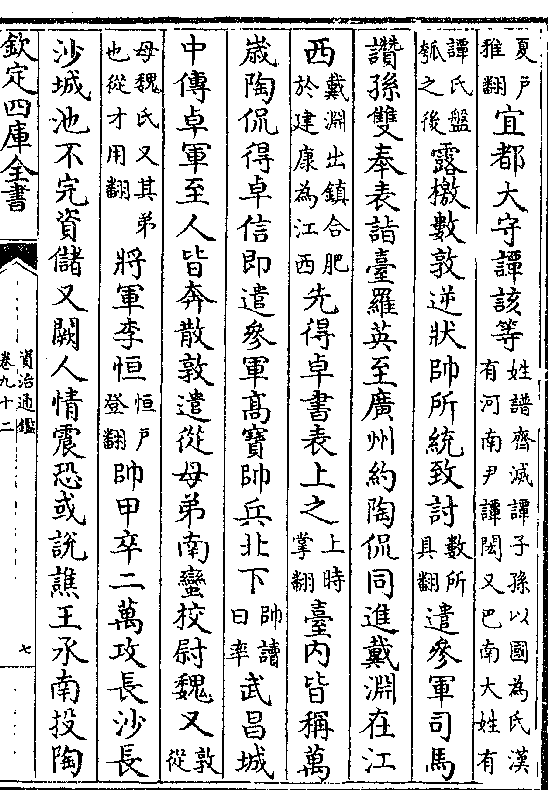 夏戶
雅翻宜都大守譚該等姓譜齊滅譚子孫以國為氏漢
有河南尹譚閎又巴南大姓有
譚氏盤
瓠之後露檄數敦逆狀帥所統致討數所
具翻遣參軍司馬
讚孫雙奉表詣臺羅英至廣州約陶侃同進戴淵在江
西戴淵出鎮合肥
於建康為江西先得卓書表上之上時
掌翻臺内皆稱萬
歲陶侃得卓信即遣參軍髙寶帥兵北下帥讀
曰率武昌城
中傳卓軍至人皆奔散敦遣從母弟南蠻校尉魏乂敦從
母魏氏乂其弟
也從才用翻將軍李恒恒戶
登翻帥甲卒二萬攻長沙長
沙城池不完資儲又闕人情震恐或說譙王氶南投陶
欽定四庫全書
資治通鑑
卷九十二
七